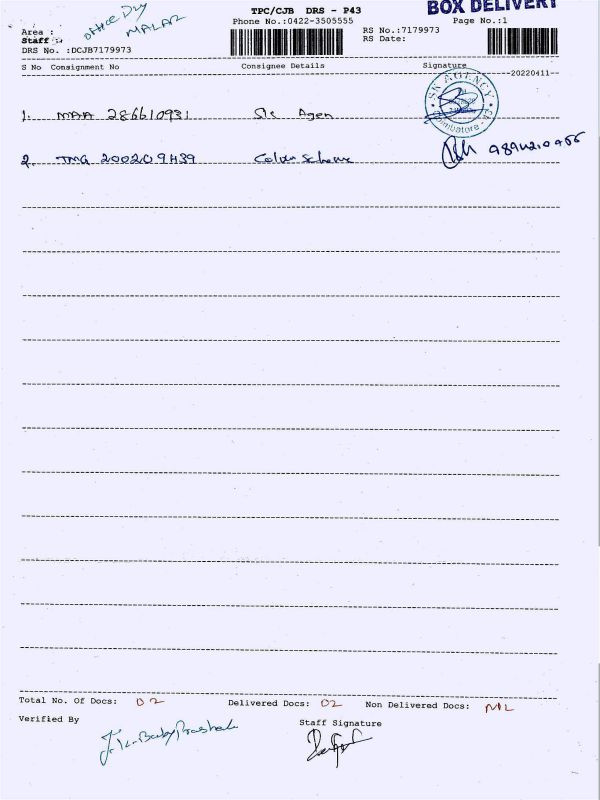 TPC/CJB DRS - P43
BOX DELIVERY
Office Dly
MALAR
Phone No.:0422-3505555
Page No.:1
Area :
RS No.:7179973
Staff :
RS Date:
DRS No. :DCJB7179973
S No Consignment No Consignee Details Signature
20220411
SK AGENCY
Coimbatore
1. MAA 286610931 SK Agen
2. TMG 200209439 Colour Scheme
Total No. Of Docs: 02 Delivered Docs: 02 Non Delivered Docs: NIL
Verified By
Staff Signature